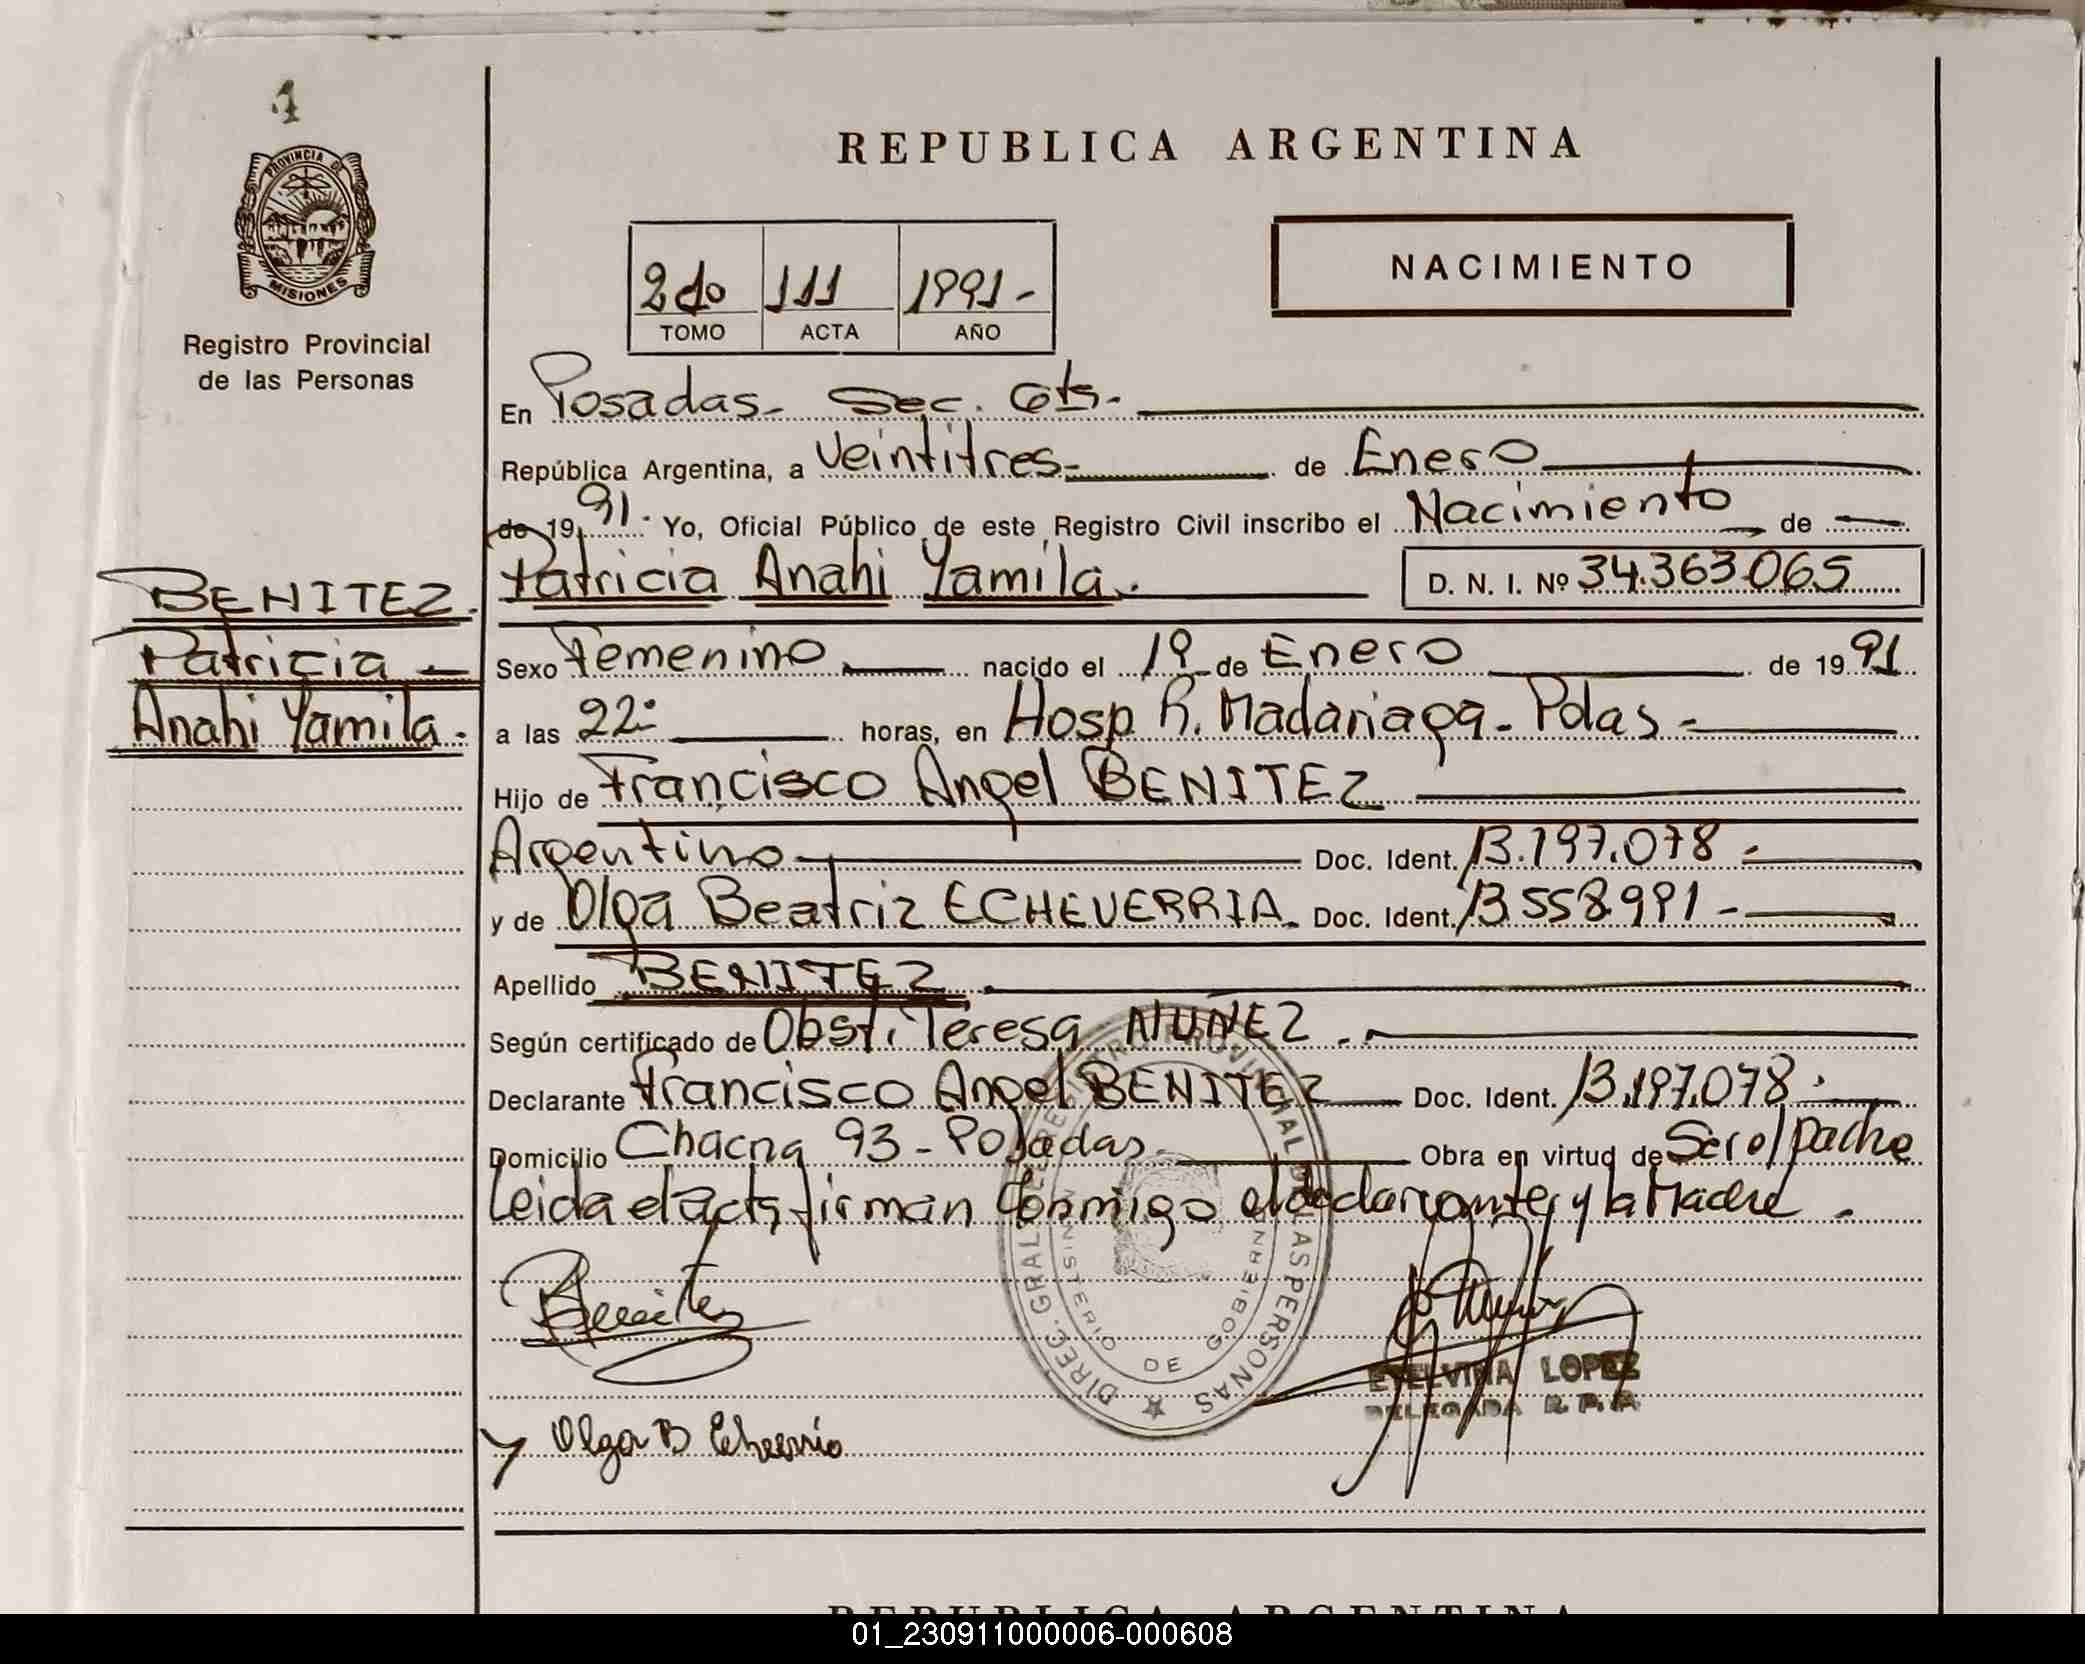 1
PROVINCIA DE
MISIONES
Registro Provincial
de las Personas
REPUBLICA ARGENTINA
2do 111 1991-
TOMO ACTA AÑO
NACIMIENTO
En Posadas - Sec. 6ta.
República Argentina, a Veintitres.- de Enero
de 1991. Yo, Oficial Público de este Registro Civil inscribo el Nacimiento de
Patricia Anahi Yamila. D. N. I. Nº 34.363.065
BENITEZ.
Patricia -
Anahi Yamila.
Sexo Femenino nacido el 19 de Enero de 1991
a las 22: horas, en Hosp R. Madariaga - Pdas -
Hijo de Francisco Angel BENITEZ
Argentino - Doc. Ident. 13.197.078 -
y de Olga Beatriz ECHEVERRIA. Doc. Ident. 13.558.991 -
Apellido BENITEZ.
Según certificado de Obst. Teresa NUÑEZ.
Declarante Francisco Angel BENITEZ Doc. Ident. 13.197.078.
Domicilio Chacra 93 - Posadas. Obra en virtud de Ser el padre
Leida el acta firman conmigo el declarante y la Madre.
DIREC. GRAL. DE REGISTRO PROVINCIAL DE LAS PERSONAS
MINISTERIO DE GOBIERNO
Benitez
ETELVINA LOPEZ
DELEGADA R.P.P.
Olga B Echeverria
REPUBLICA ARGENTINA
01_230911000006-000608